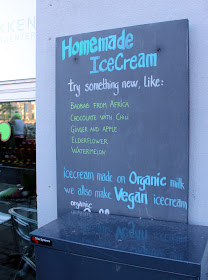 KKEN
Homemade
IceCream
try something new, like:
BAOBAB FROM AFRICA
CHOCOLATE WITH CHILI
GINGER AND APPLE
ELDERFLOWER
WATERMELON
icecream made on Organic milk
we also make Vegan icecream
organic